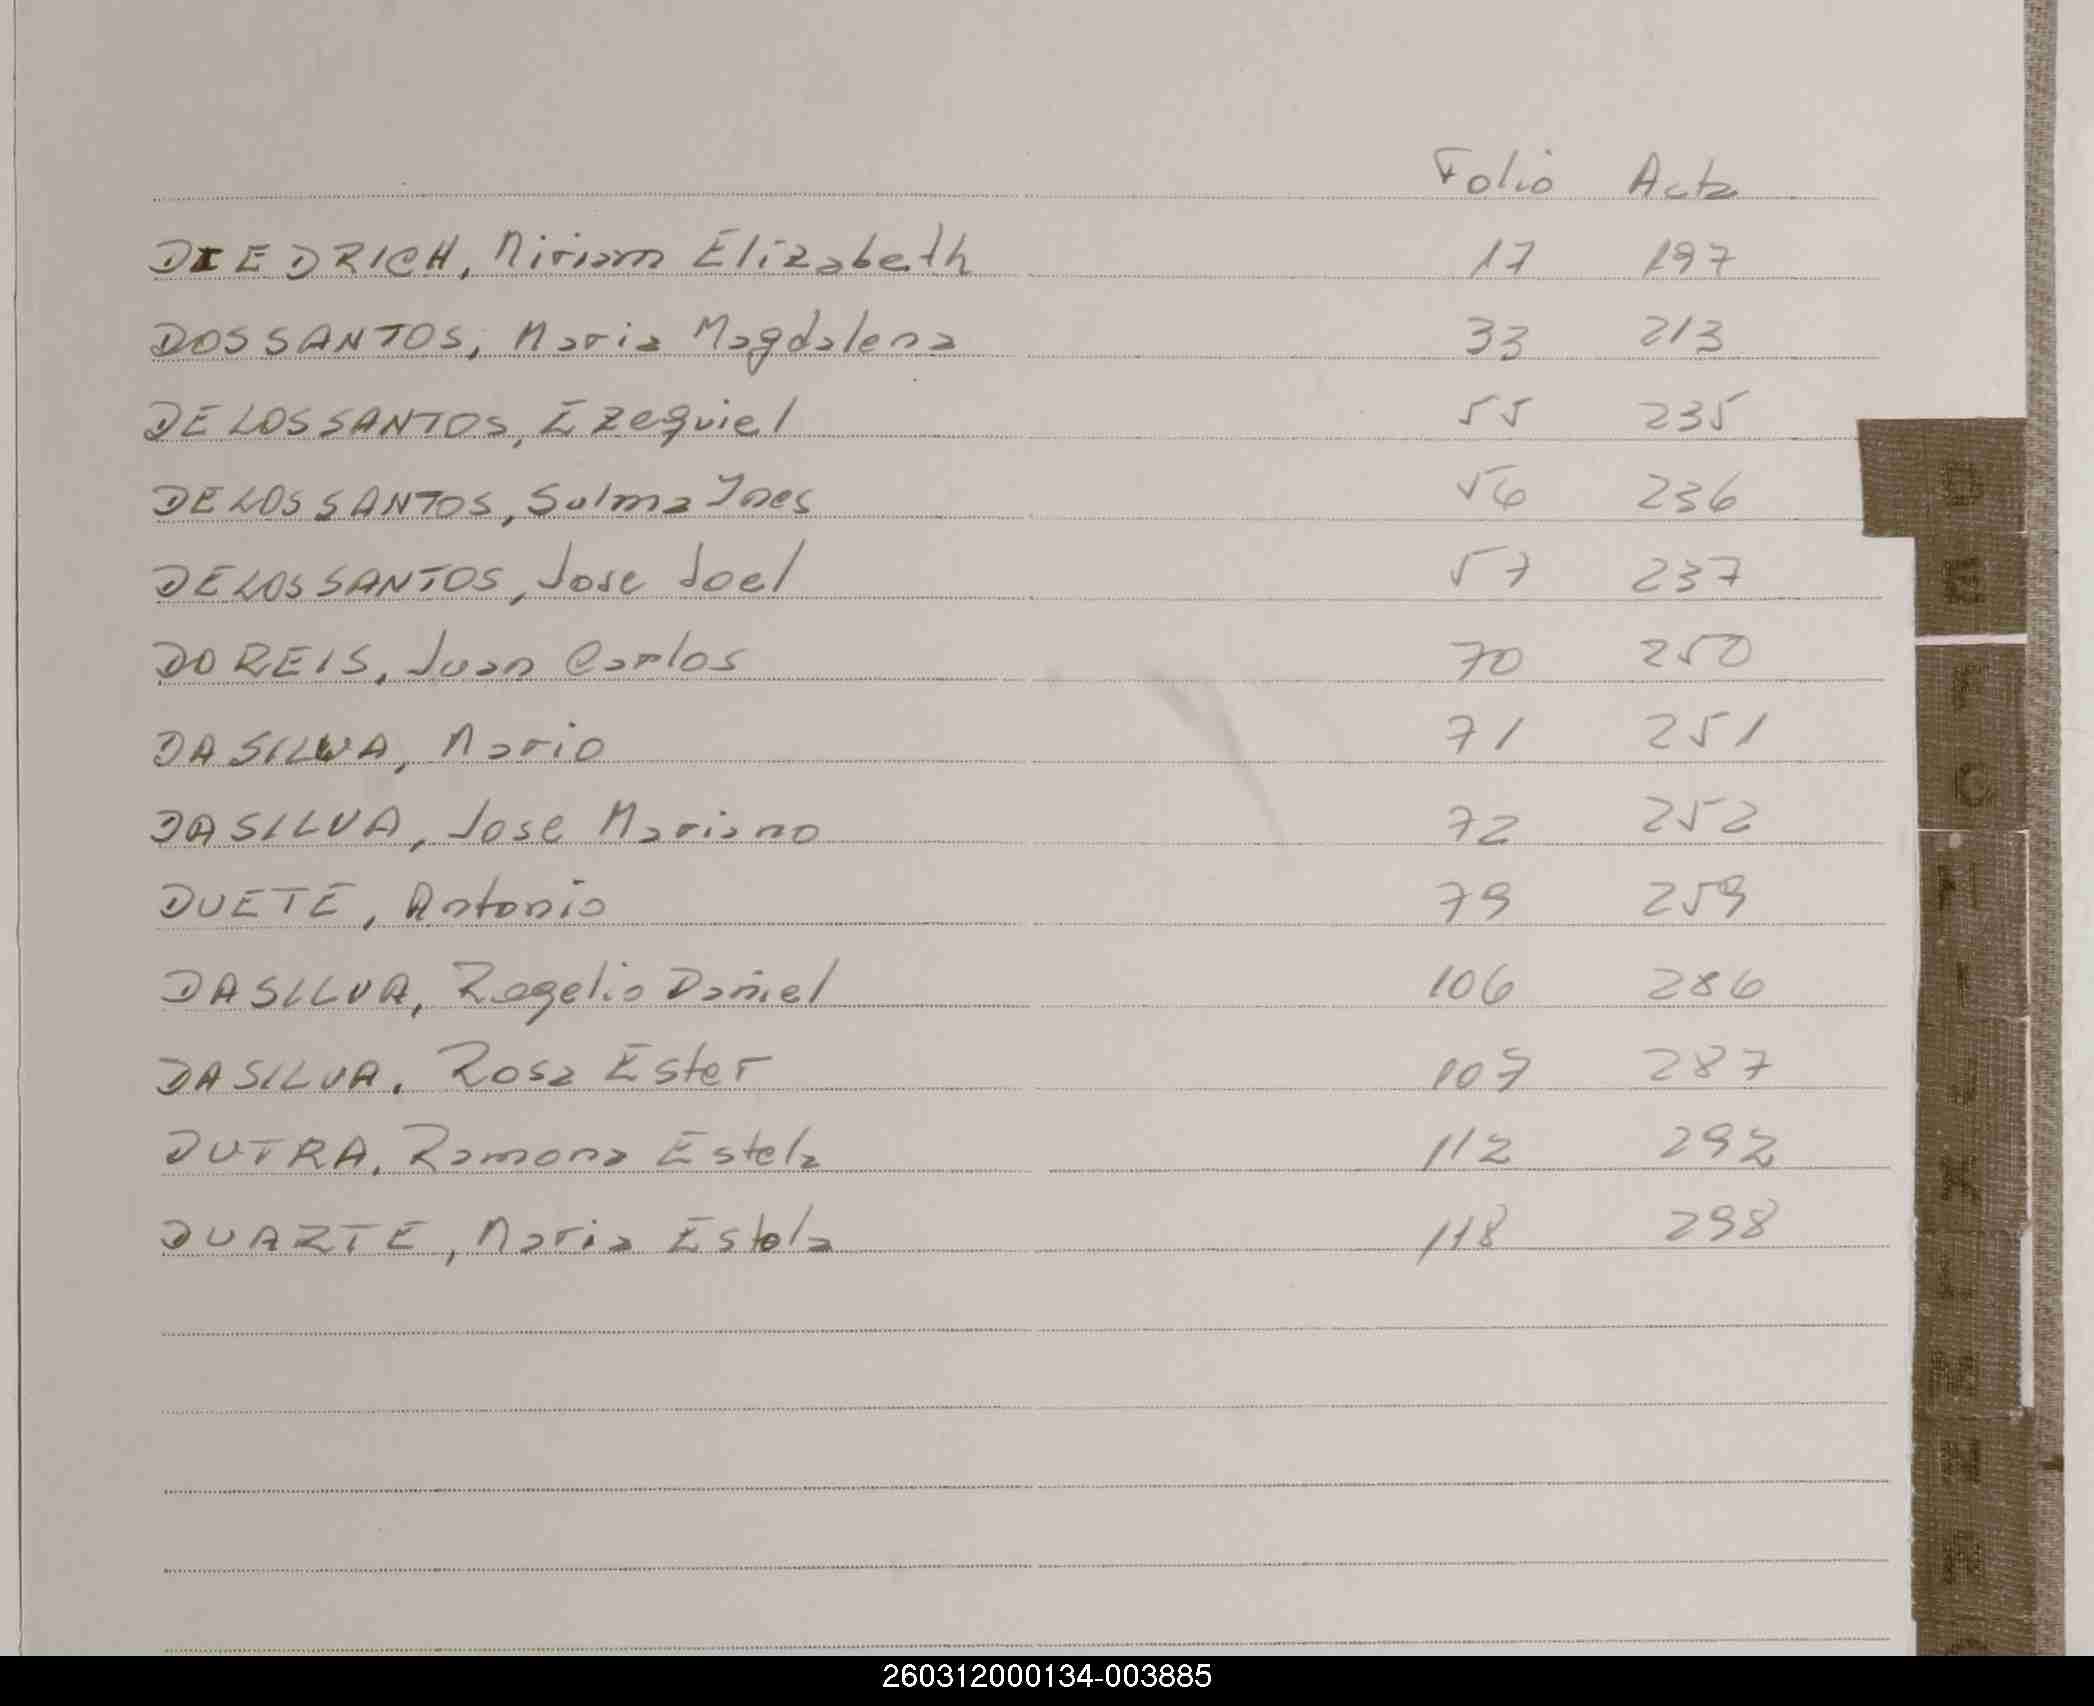 Folio Acta
DIEDRICH, Miriam Elizabeth 17 197
DOSSANTOS, Maria Magdalena 33 213
DELOSSANTOS, Ezequiel 55 235
DELOSSANTOS, Sulma Ines 56 236
DELOSSANTOS, Jose Joel 57 237
DOREIS, Juan Carlos 70 250
DASILVA, Mario 71 251
DASILVA, Jose Mariano 72 252
DUETE, Antonio 79 259
DASILVA, Rogelio Daniel 106 286
DASILVA, Rosa Ester 107 287
DUTRA, Ramona Estela 112 292
DUARTE, Maria Estela 118 298
260312000134-003885